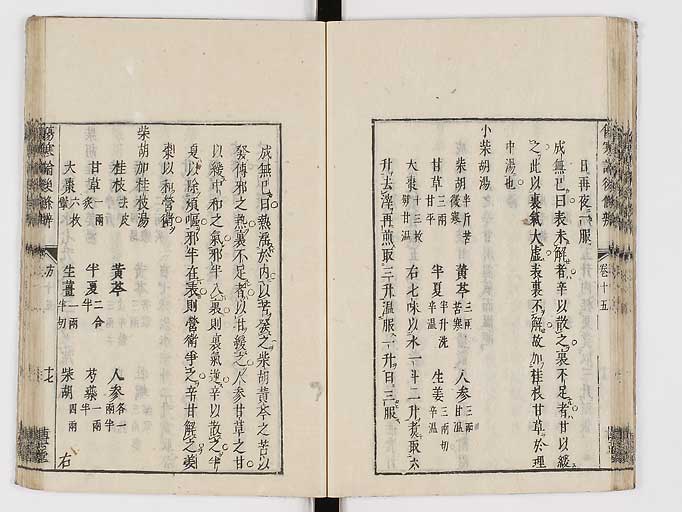 日再夜一服
成無已曰表未解者辛以散之裏不足者甘以緩
之此以裏氣大虛表裏不解故加桂枝甘草於理
中湯也
小柴胡湯
柴胡半斤苦微寒 黃芩三兩苦寒 人參三兩甘溫
甘草三兩甘平 半夏半升洗辛溫 生姜三兩切辛溫
大棗十三枚擘甘溫 右七味以水一斗二升煮取六
升去滓再煎取三升温服一升日三服
傷寒論後條辨 卷十五
成無已曰熱淫於內以苦發之柴胡黃芩之苦以
發傳邪之熱裏不足者以甘緩之人參甘草之甘
以緩中和之氣邪半入裏則裏氣逆辛以散之半
夏以除煩嘔邪半在表則營衛爭之辛甘解之姜
棗以和營衛
柴胡加桂枝湯
桂枝去皮 黃芩 人參各一兩半
甘草一兩炙 半夏二合半 芍藥一兩半
大棗六枚擘 生薑一兩半切 柴胡四兩 右
傷寒論後條辨 方 十五 十七